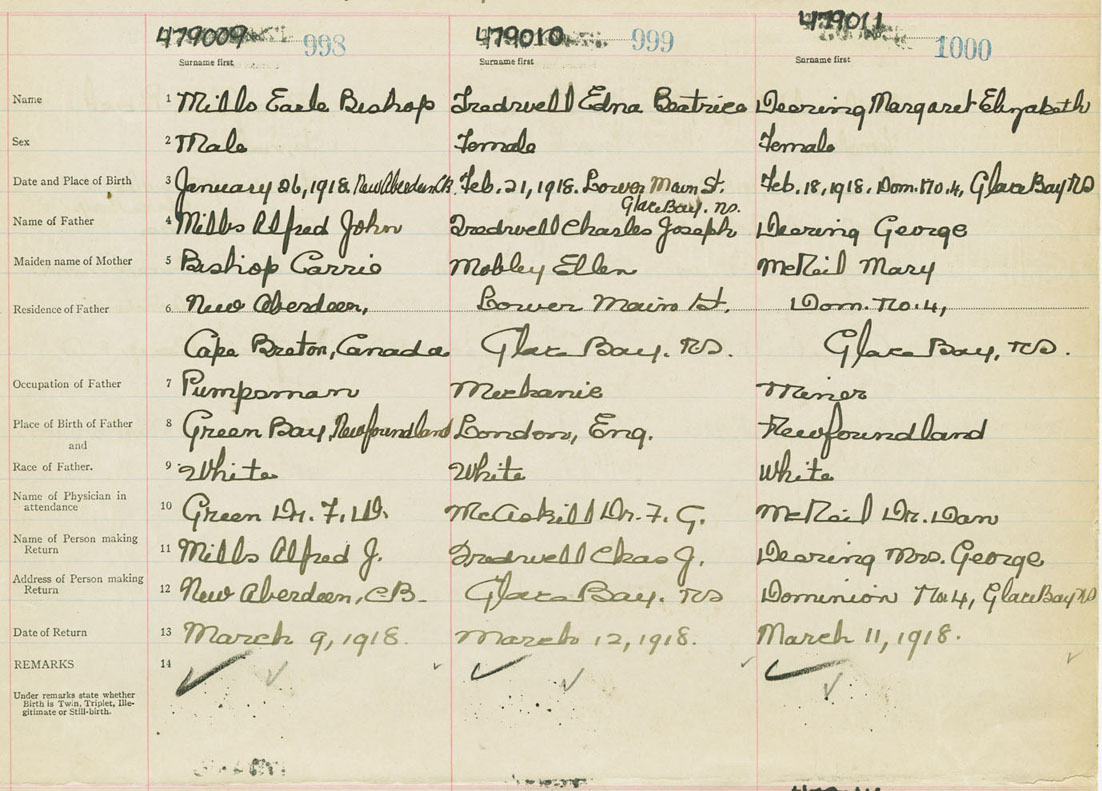 479009 998 479010 999 479011 1000
Surname first Surname first Surname first
Name 1 Mills Earle Bishop Tredwell Edna Beatrice Dearing Margaret Elizabeth
Sex 2 Male Female Female
Date and Place of Birth 3 January 26, 1918. New Aberdeen C.B. Feb. 21, 1918. Lower Main St. Feb. 18, 1918. Dom. No. 4, Glace Bay NS
Glace Bay. NS.
Name of Father 4 Mills Alfred John Tredwell Charles Joseph Dearing George
Maiden name of Mother 5 Bishop Carrie Mobley Ellen McNeil Mary
Residence of Father 6 New Aberdeen, Lower Main St. Dom. No. 4,
Cape Breton, Canada Glace Bay. NS. Glace Bay, NS.
Occupation of Father 7 Pumpsman Mechanic Miner
Place of Birth of Father 8 Green Bay, Newfoundland London, Eng. Newfoundland
and
Race of Father. 9 White White White
Name of Physician in
attendance 10 Green Dr. F. W. McAskill Dr. F. G. McNeil Dr. Dan
Name of Person making
Return 11 Mills Alfred J. Tredwell Chas J. Dearing Mrs. George
Address of Person making
Return 12 New Aberdeen, C.B. Glace Bay. NS Dominion No. 4, Glace Bay NS
Date of Return 13 March 9, 1918. March 12, 1918. March 11, 1918.
REMARKS 14
Under remarks state whether
Birth is Twin, Triplet, Ille-
gitimate or Still-birth.